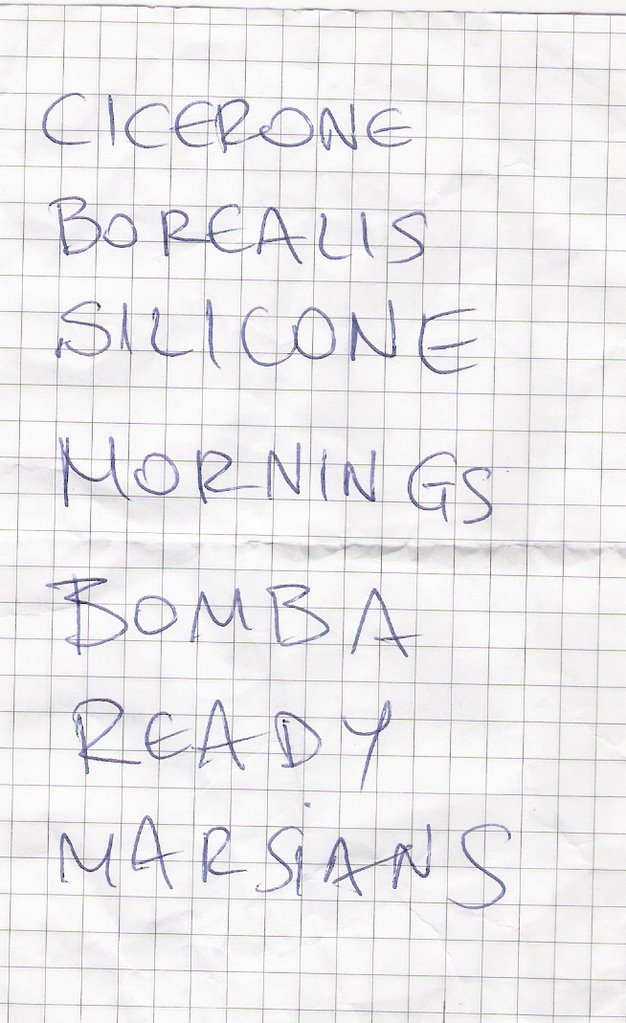 CICERONE
BOREALIS
SILICONE
MORNINGS
BOMBA
READY
MARSiANS